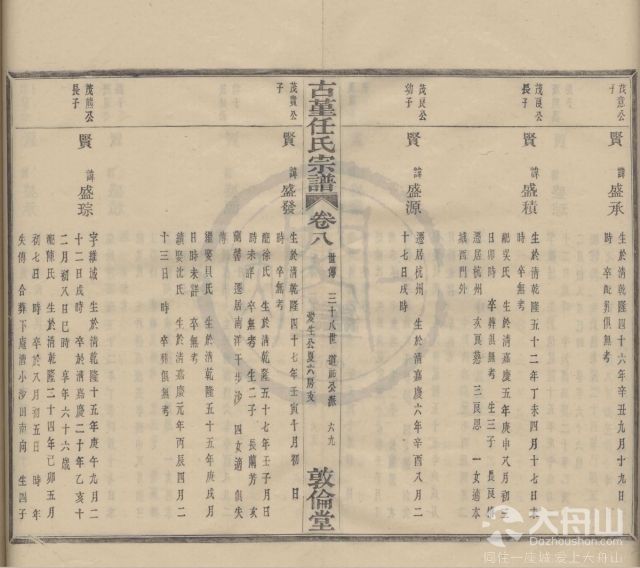 茂意公
子
賢 諱盛承
生於清乾隆四十六年辛丑九月十九日
時 卒配葬俱無考
茂良公
長子
賢 諱盛積
生於清乾隆五十二年丁未四月十七日
時 卒無考
配吳氏 生於清嘉慶五年庚申八月初三
日卯時 卒葬俱無考 生三子 長良
遷居杭州 次良 三良思 一女適本
城西門外
茂良公
幼子
賢 諱盛源
遷居杭州 生於清嘉慶六年辛酉八月二
十七日戌時
古堇任氏宗譜
卷八
世傳 三十八世 道 公派 六九
愛生公夏六房支
敦倫堂
茂貴公
子
賢 諱盛發
生於清乾隆四十七年壬寅十月初 日
時 卒無考
配徐氏 生於清乾隆五十七年壬子月日
時未詳 卒無考 生二子 長蘭芳 次
蘭馨 遷居南洋千步沙 四女適俱失
傳
繼娶貝氏 生於清乾隆五十五年庚戌月
日時未詳 卒無考
續娶沈氏 生於清嘉慶元年丙辰四月二
十三日 時 卒葬俱無考
茂 公
長子
賢 諱盛琮
字維城 生於清乾隆十五年庚午九月二
十二日戌時 卒於清嘉慶二十年乙亥十
二月初八日巳時 享年六十六歲
配陳氏 生於清乾隆二十四年己卯五月
初七日 時 卒於八月初五日 時 年
失傳 合葬下處 小沙田南向 生四子
大舟山
Dazhoushan.com
同住一座城 爱上大舟山